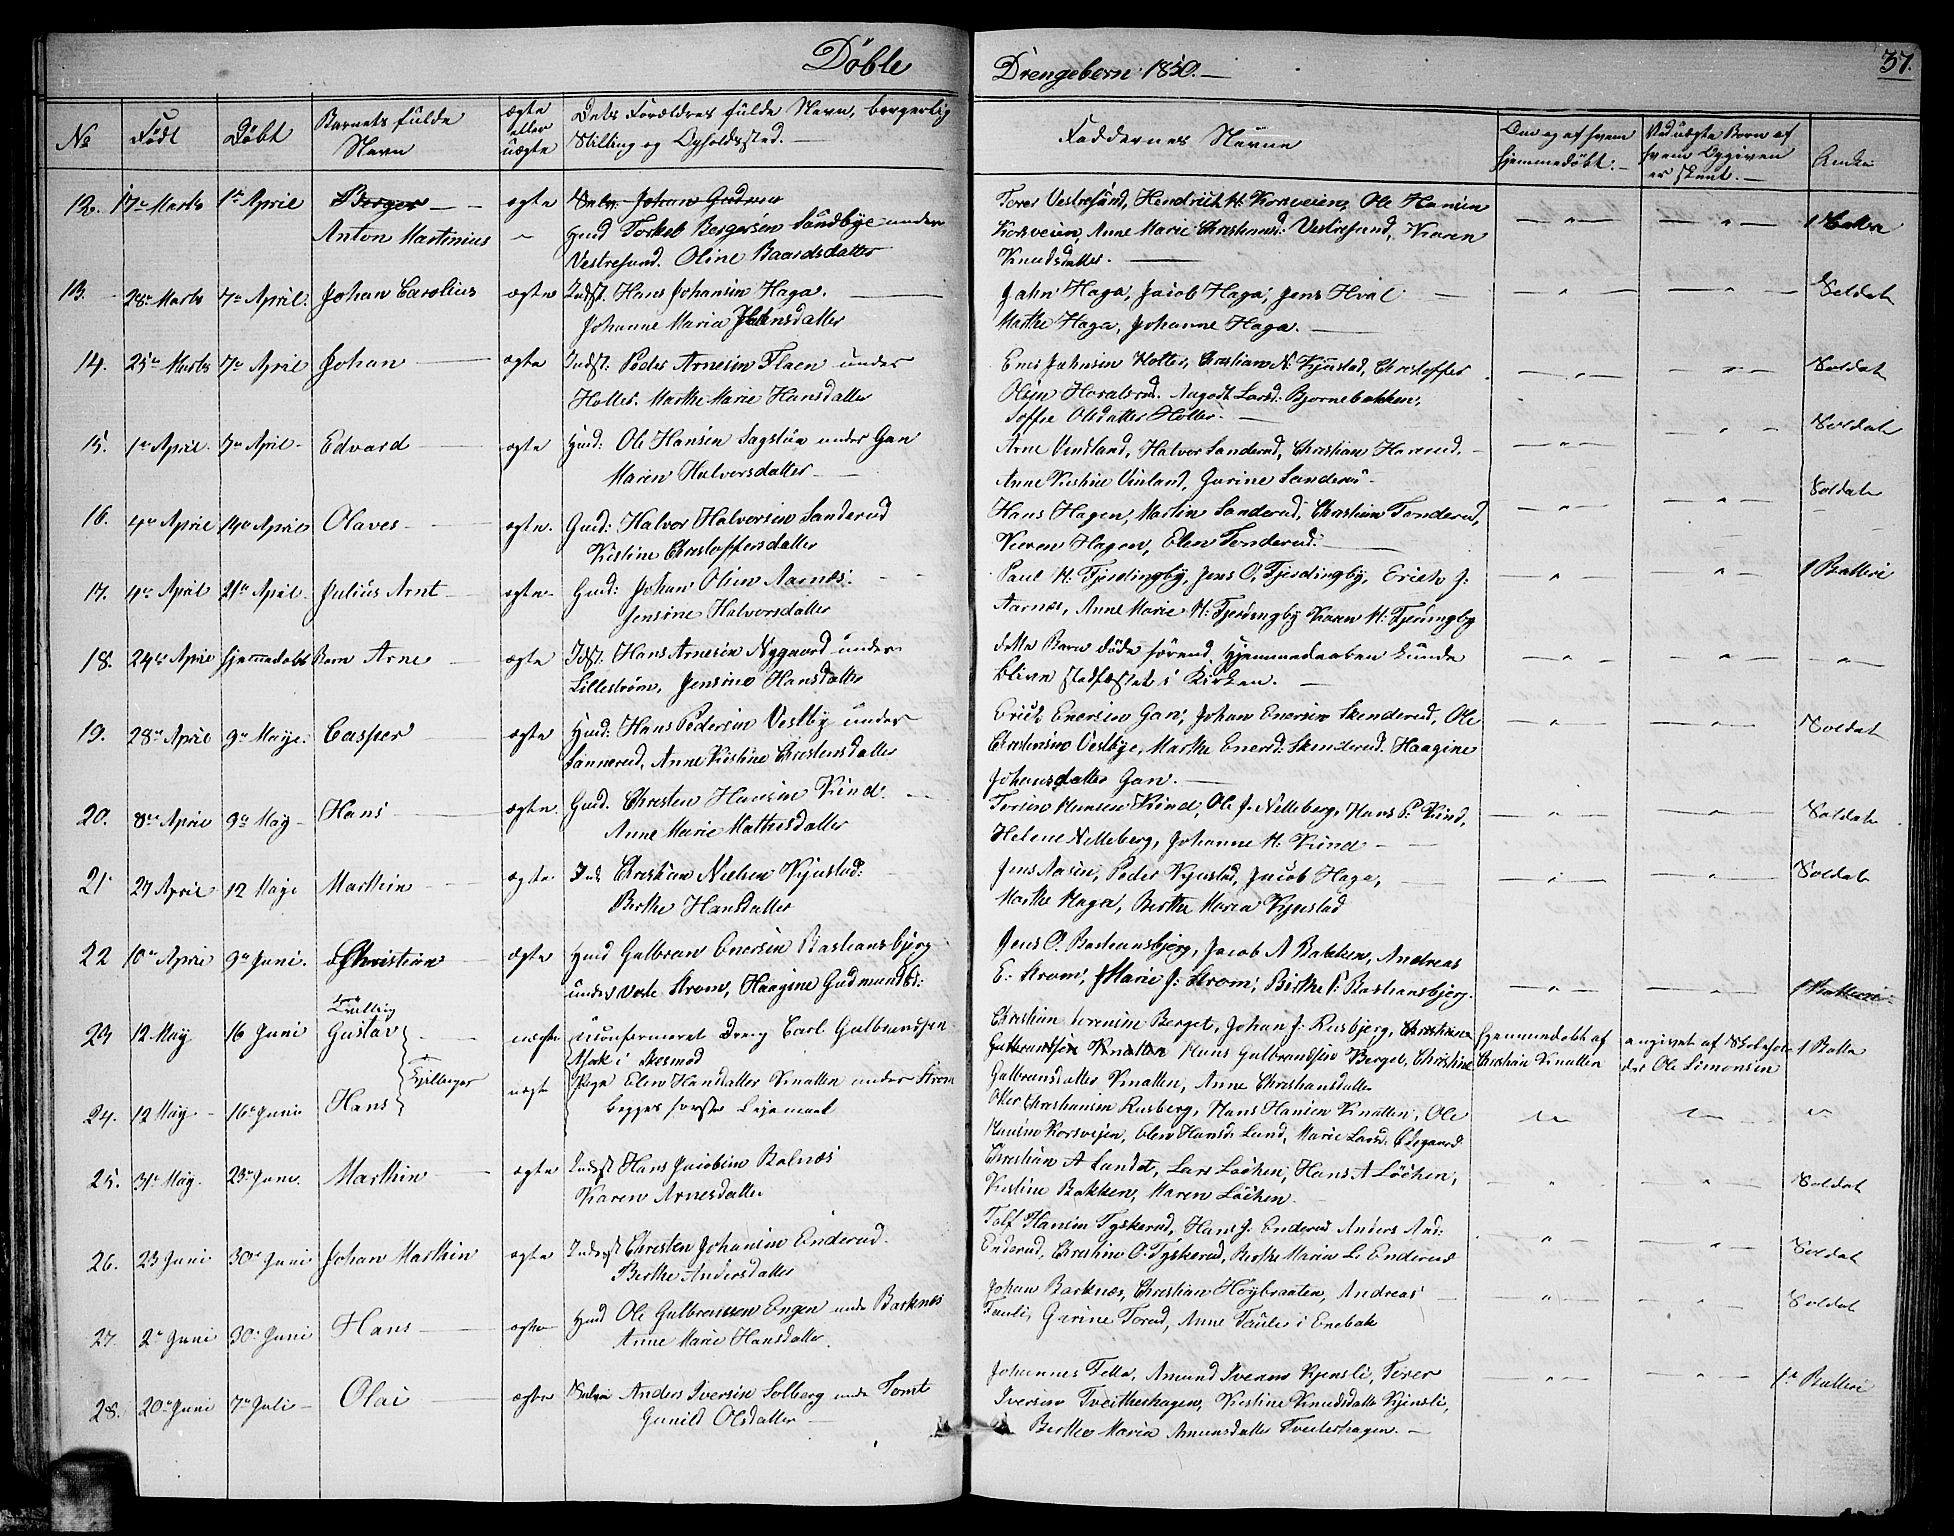 Döbte
Drengebørn 1850.
37.
No
Født
Døbt
Barnets fulde
Navn
ægte
eller
uægte
Dets Forældres fulde Navn, borgerlig
Stilling og Opholdssted.
Faddernes Navne
Om og af hvem
hjemmedöbt.
Ved uægte Born af
hvem Opgiven
er skeet.
12. 17de Marts 1ste April Berger ægte
Anton Martinius Hmd Torkel Bergersen Sundbye under
Vestresund. Oline Baardsdatter
Torer Vestresund, Hendrich H. Korsveien, Ole Hansen
Korsveien, Anne Marie Christiansd: Vestresund, Karen
Knudsdatter.
13. 28de Marts 7de April Johan Carolius ægte Indst. Hans Johansen Haga.
Johanne Maria Hansdatter
John Haga, Jacob Haga, Jens Hval
Marthe Haga, Johanne Haga.
Soldat
14. 25de Marts 7de April Johan ægte Indst: Peder Arnesen Flaen under
Holter. Marthe Marie Hansdatter
Ener Johnsen Holter, Christian N. Kjustad, Christoffer
Olsen Haralsrud. Larsd: Bjornebakken,
Soffie Olsdatter Holter.
Soldat
15. 1ste April 7de April Edvard ægte Hmd: Ole Hansen Sagstua under Gan
Maren Halvorsdatter
Arne Vindland, Halvor Sanderud, Christian Harerud,
Anne Kirstine Vinland, Gurine Sanderud
Soldat
16. 4de April 14de April Olaves ægte Gmd: Halvor Halvorsen Sanderud
Kirstine Christoffersdatter
Hans Hagen, Martin Sanderud, Christian Tonderud,
Karen Hagen, Elen Tonderud.
Soldat
17. 4de April 21de April Julius Arnt ægte Gmd: Johan Olsen Aarnæs.
Jensine Halvorsdatter
Paul H. Fjerdingby, Jens O. Fjerdingby, Erich J.
Aarnæs, Anne Marie H: Fjerdingby Karen H: Fjerdingby
1 Batteri
18. 24de April hjemmedøbt Barn Arne ægte Indst. Hans Arnesen Nygaard under
Lillestrøm, Jensine Hansdatter
dette Barn döde förend Hjemmedaaben kunde
bliven stadfæstet i Kirken.
19. 28de April 9de Maye Casper ægte Hmd: Hans Pedersen Vestby under
Sannerud, Anne Kirstine Christensdatter
Erich Enersen Gan, Johan Enersen Skenderud, Ole
Christensen Vestbye, Marthe Enersd: Skenderud. Haagine
Johansdatter Gan.
Soldat
20. 8de April 9de May Hans ægte Gmd. Christen Hansen Kind.
Anne Marie Mathisdatter
Hansen Kind, Ole J. Nitteberg, Hans P. Kind,
Helene Nitteberg, Johanne H. Kind
Soldat
21 27 April 12 Maye Marthin ægte Christian Nielsen Kjustad:
Berthe Hansdatter
Jens Aasen, Peder Kjustad, Jacob Haga,
Marthe Haga, Berthe Maria Kjustad
Soldat
22 10de April 9de Juni. Christian ægte Hmd Gulbran Enersen Bastiansbjerg
under Vestre Strom, Haagine Gudmundsd:
Jens O. Bastiansbjerg, Jacob A Bakken, Andreas
E. Strom, Marie J. Strom, Birthe P. Bastiansbjerg.
1 Batteri
23 12 May 16 Juni Gustav uægte uconfirmeret Dreng Carl Gulbrandsen
Asak i Skesmod
Christian Sorensen Berget, Johan J. Rusbjerg,
Hans Gulbrandsen Berget, Christine
Gulbrandsdatter Knatten, Anne Christiansdatter
Hjemmedøbt af
Christian Knatten
angivet af
Ole Simonsen
1 Batte
Tvillinger
24. 12 May 16de Juni Hans uægt Pige Elen Hansdatter Knatten under Strom
begges første Leiemaal
Christiansen Rusberg, Hans Hansen Knatten, Ole
Hansen Korsvejen, Elen Hansd. Lund, Marie Larsd. Ødegaard
25. 31te May 23de Juni Marthin ægte Indst Hans Jacobsen Bolnæs
Karen Arnesdatter
Christian A Lundet, Lars Löchen, Hans A Löchen,
Kirstine Bakken, Maren Löchen
Soldat
26. 23 Juni 30te Juni Johan Marthin ægte Indst Christen Johansen Enderud.
Berthe Andersdatter
Tolf Hansen Tyskerud, Hans J. Enderud Anders And:
Enderud, Christine O. Tyskerud, Berthe Maria L. Enderud
Soldat
27. 2de Juni 30te Juni Hans ægte Hmd Ole Gulbransen Engen under Barknæs
Anne Marie Hansdatter.
Johan Barknæs, Christian Höybraaten, Andreas
Tauli, Gurine Torud, Anne Taule i Enebak
Soldat
28. 20de Juni 7de Juli Olai ægte Anders Iversen Solberg under Tomt
Gunild Olsdatter
Johannes Fella, Amund Iversen Kjensli, Torer
Iversen Tveitterhagen, Kirstine Knudsdatter Kjensli,
Berthe Maria Amunsdatter Tveiterhagen.
1ste Batteri